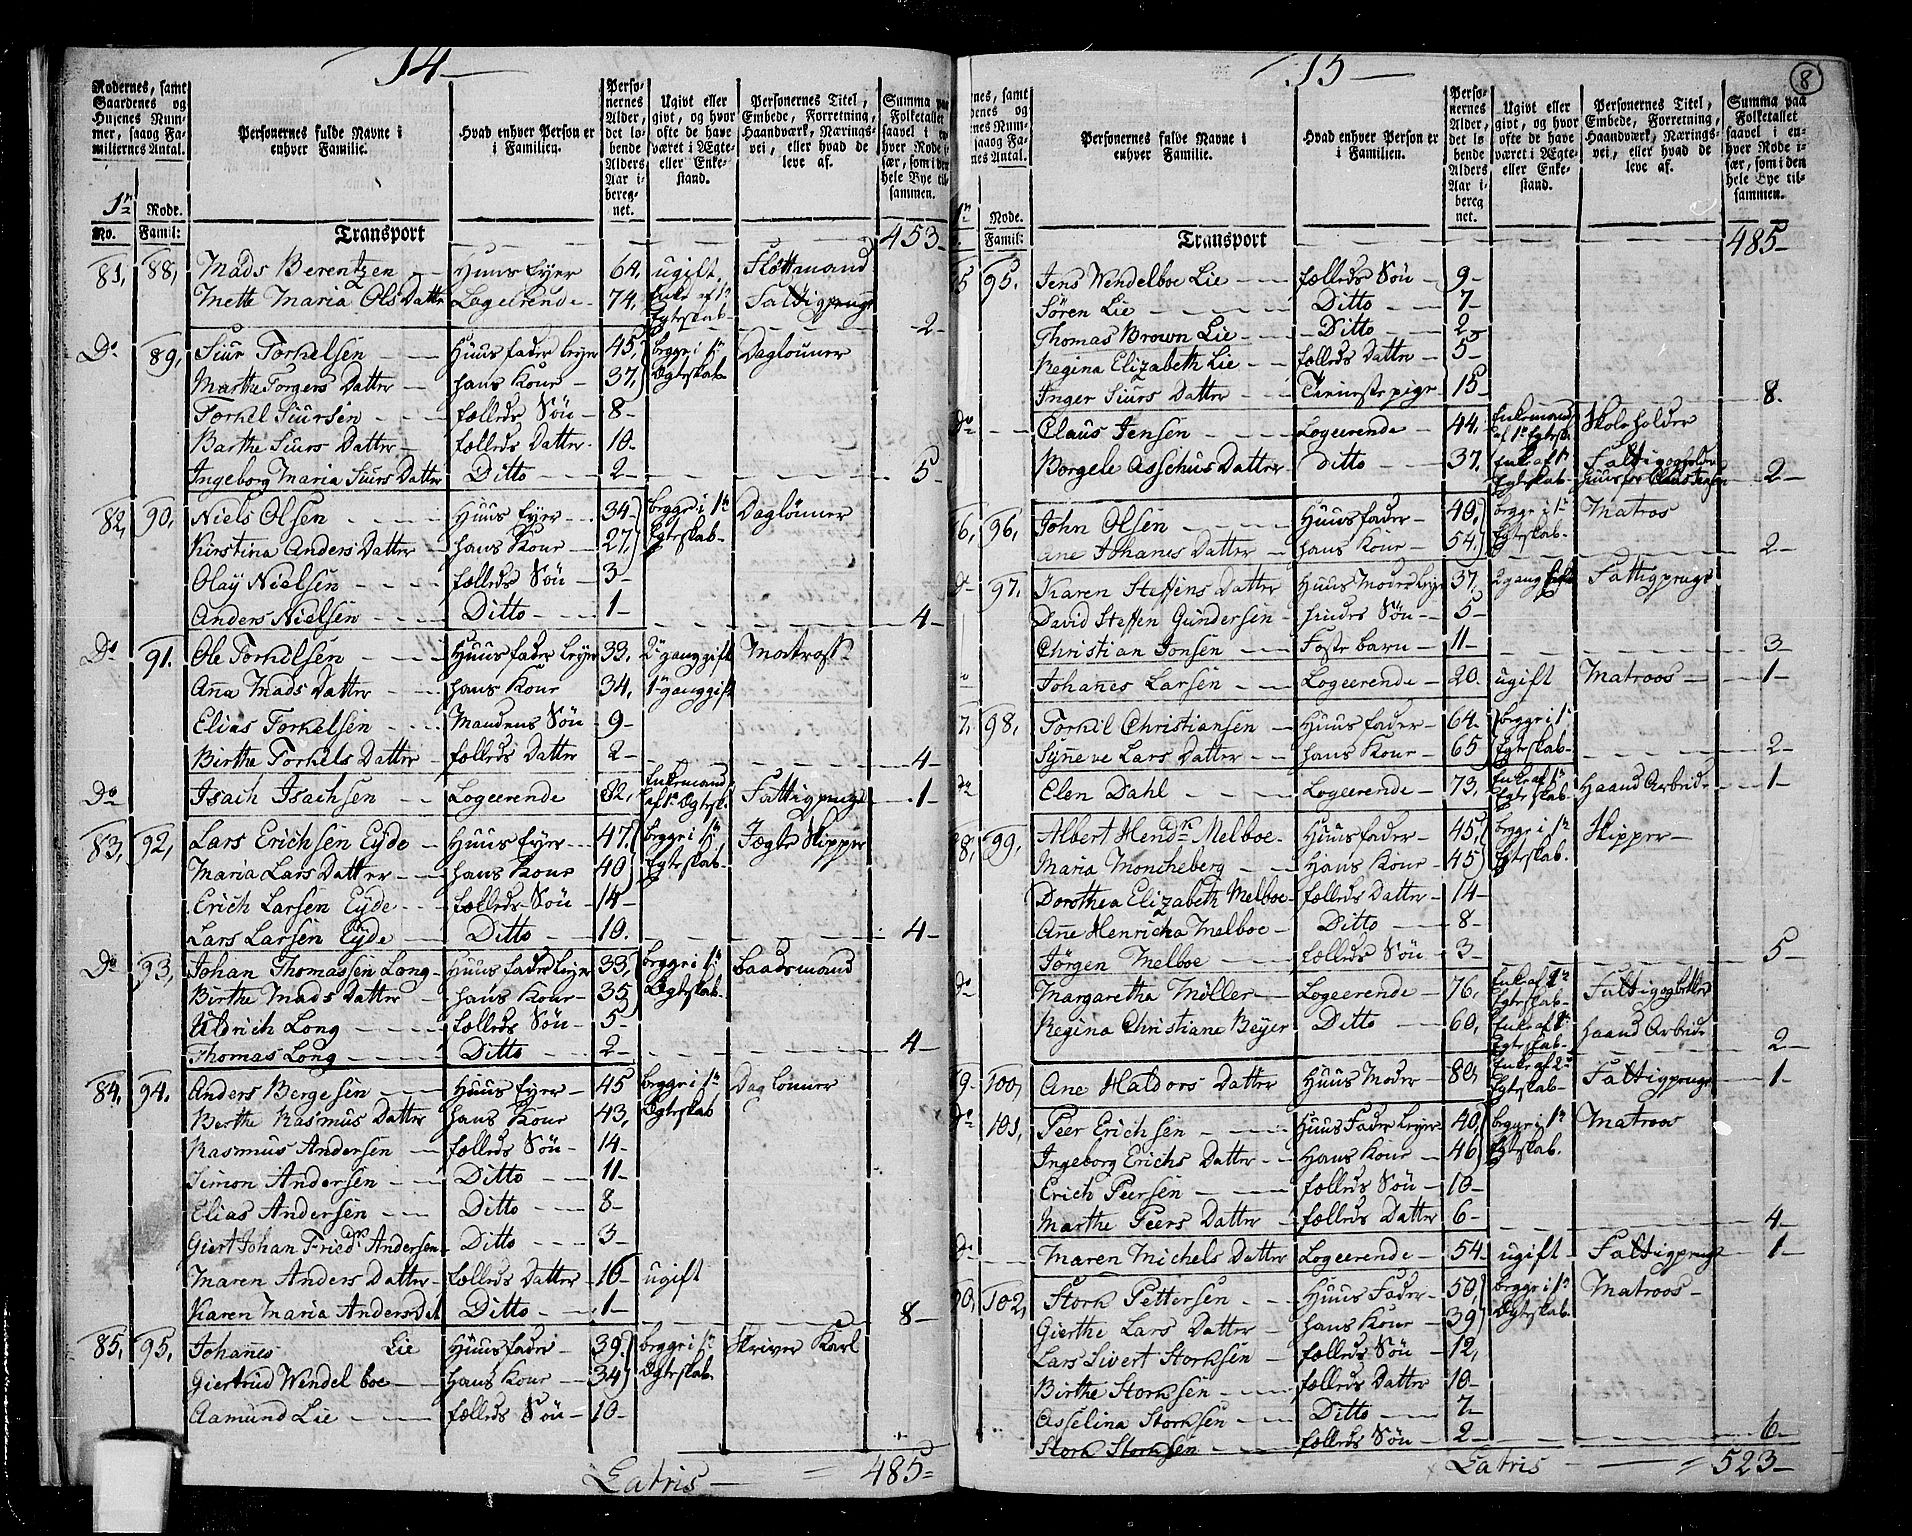 14
Rodernes, samt Gaardenes og Husenes Nummer, saaog Familiernes Antal.
Personernes fulde Navne i enhver Familie.
Hvad enhver Person er i Familien.
Personernes Alder, det løbende Alders Aar iberegnet.
Ugivt eller givt, og hvor ofte de have været i Ægte- eller Enkestand.
Personernes Titel, Embede, Forretning, Haandværk, Næringsvei, eller hvad de leve af.
Summa paa Folketallet saavel i enhver Rode især, som i den hele Bye tilsammen.
1ste Rode.
No. Famil: Transport 453
81, 88, Mads Berentzen Huus Eyer 64, ugift Slottmand
Mette Maria Ols Datter Logeerende 74, Enke af 1te Egteskab Fattigpenge 2
Do 89, Siur Torkelsen Huus fader leyer 45, begge i 1te Egteskab Daglønner
Marthe Torgers Datter hans Kone 37,
Torkel Siursen fælleds Søn 8
Barthe Siurs Datter fælleds Datter 10
Ingeborg Maria Siurs Datter Ditto 2 5
82, 90, Niels Olsen Huus Eyer 34 begge i 1te Egteskab Daglønner
Kirstina Anders Datter hans Kone 27,
Olay Nielsen fælleds Søn 3
Anders Nielsen Ditto 1 4
Do 91. Ole Torkelsen Huus fader leyer 33, 2den gang gift Matros
Aña Mads Datter hans Kone 34, 1te gang gift
Elias Torkelsen Mandens Søn 9
Birthe Torkels Datter fælleds Datter 2 4
Do Isach Isachsen Logeerende 82, Enkemand af 1te Egtesk. Fattigpenge 1
83, 92, Lars Erichsen Eyde Huus Eyer 47, begge i 1te Egteskab Jægte Skipper
Maria Lars Datter hans Kone 40
Erich Larsen Eyde fælleds Søn 14
Lars Larsen Eyde Ditto 10. 4
Do 93, Johan Thomassen Long Huus fader leyer 33, begge i 1te Egteskab baadsmand
Birthe Mads Datter hans Kone 35
Uldrich Long fælleds Søn 5
Thomas Long Ditto 2 4
84, 94, Anders Bergesen Huus Eyer 45 begge i 1te Egteskab Daglönner
Berthe Rasmus Datter hans Kone 43,
Rasmus Andersen fælleds Søn 14
Simon Andersen Ditto 11
Elias Andersen Ditto 8
Giert Johan Friedr. Andersen Ditto 3
Maren Anders Datter fælleds Datter 16 ugift
Karen Maria Anders Dat Ditto 1 8
85, 95, Johañes Lie Huus fader 39. begge i 1te Egteskab Skriver Karl
Giertrud Wendelboe hans Kone 34
Aamund Lie fælleds Søn 10
Latris 485
15
8
Rodernes, samt Gaardenes og Husenes Nummer, saaog Familiernes Antal.
Personernes fulde Navne i enhver Familie.
Hvad enhver Person er i Familien.
Personernes Alder, det løbende Alders Aar iberegnet.
Ugivt eller givt, og hvor ofte de have været i Ægte- eller Enkestand.
Personernes Titel, Embede, Forretning, Haandværk, Næringsvei, eller hvad de leve af.
Summa paa Folketallet saavel i enhver Rode især, som i den hele Bye tilsammen.
Rode.
Famil: Transport 485
5 95. Jens Wendelboe Lie fælleds Søn 9
Søren Lie Ditto 7
Thomas Brown Lie Ditto 2
Regina Elizabeth Lie fælleds Datter 5
Inger Siurs Datter Tienestepige 15 8.
do Claus Jensen Logeerende 44, Enkemand af 1te Egtesk. Skoleholder
Borgele Asschus Datter ditto 37, Enke af 1te Egteskab 2
6, 96, John Olsen Huus fader 40, begge i 1te Egteskab Matros
Ane Johañes Datter hans Kone 54, 2
do 97. Karen Steffens Datter Huus Moder leyer 37. 2 gang Fattigpenge
David Steffen Gundersen hindes Søn 5
Christian Jonsen Foste barn 11 3
Johañes Larsen Logeerende 20. ugift Matroos 1
7, 98, Torkil Christiansen Huus fader 64. begge i 1te Egteskab
Syñeve Lars Datter hans Kone 65 2
do Elen Dahl Logeerende 73, Enke af 1te Egteskab Haand Arbeid 1
8, 99, Albert Hendr. Melboe Huus fader 45, begge i 1te Egteskab. Skipper
Maria Moncheberg Hans Kone 45
Dorothea Elizabeth Melboe fælleds Datter 14
Añe Henricha Melboe Ditto 8
Jørgen Melboe fælleds Søn 3 5
do Margaretha Møller Logeerende 76, Enke af Egteskab
Regina Christiane Beyer Ditto 60, Enke af Egteskab haand Arbeide 2
9 100, Ane Haldors Datter Huus Moder 80, Enke af 2de Egteskab Fattigpenge 1
do 101, Peer Erichsen Huus Fader leyer 40, begge i 1te Egteskab. Matroos
Ingeborg Erichs Datter Hans Kone 46
Erich Peersen fælleds Søn 10
Marthe Peers Datter fælleds Datter 6 4
do Maren Michels Datter Logeerende 54 ugift Fattigpenge 1
90, 102, Stork Pettersen Huus Fader 50, begge i 1te Egteskab Matroos
Gierthe Lars Datter hans Kone 39
Lars Sivert Storksen fælleds Søn 12,
Birthe Storksen fælleds Datter 10
Asselina Storksen Ditto 7
Stork Storksen fælleds Søn 2 6
Latris 523